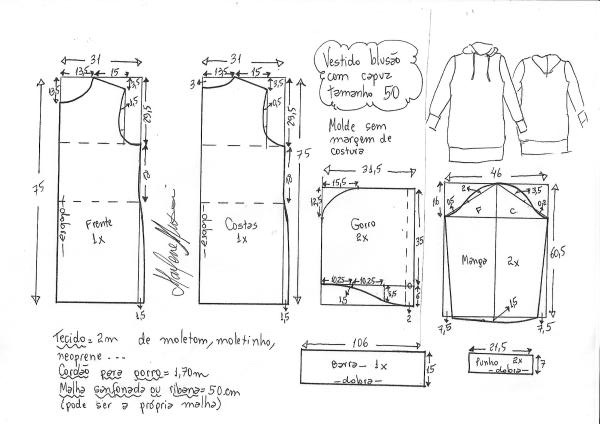 Vestido blusão
com capuz
tamanho 50
Molde sem
margem de
costura
31
13,5
15
13,5
3,5
1,5
29,5
75
dobra
Frente
1x
1,5
31
13,5
15
3
3,5
0,5
29,5
75
dobra
Costas
1x
1,5
31,5
15,5
12,5
Gorro
2x
35
10,25
10,25
1,5
3,5
2
46
16
0,5
2
3,5
F
C
Manga
2x
60,5
1,5
7,5
7,5
106
Barra - 1x
-dobra-
15
21,5
Punho 2x
-dobra-
7
Tecido = 2m de moletom, moletinho,
neoprene...
Cordão para gorro = 1,70m
Malha sanfonada ou ribana = 50 cm
(pode ser a própria malha)